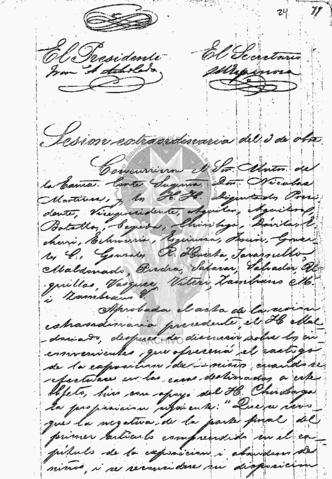 24 71
El Presidente El Secretario
Sesion extraordinaria del 3 de
Concurrieron el Sor. Mntro. de
la Don Nicolas
Martinez, y los H.H. Diputados Presi
dente, Vicepresidente, Aguilar, Aguilar
Batallas, Cepeda, Chiriboga, Dávila, E
cheverria, Gonza
lez C., Gonzalo R. Huerta, Jaramillo,
Maldonado, Piedra, Salazar, Salvador, U
quillas, Vasquez, Viteri, Zambrano M.
i Zambrano C.
Aprobada el acta de la sesion
extraordinaria precedente, el H. Mal
donado, despues de discurrir sobre los in
convenientes que ofreceria el castigo
de la exposicion de niños, cuando se
efectuare en las casas destinadas a este
objeto, hizo con apoyo del H. Chiriboga
la proposicion siguiente: "Que se
que la negativa de la parte final del
primer articulo comprendido en el ca
pitulo de la exposicion i abandono de
niños, i se reconsidere su disposicion
ARCHIVO